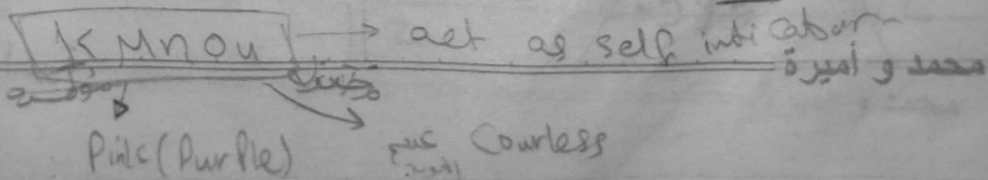 KMnOu → act as self indicator
محمد و أميرة
Pink (Purple) عديم اللون Courless